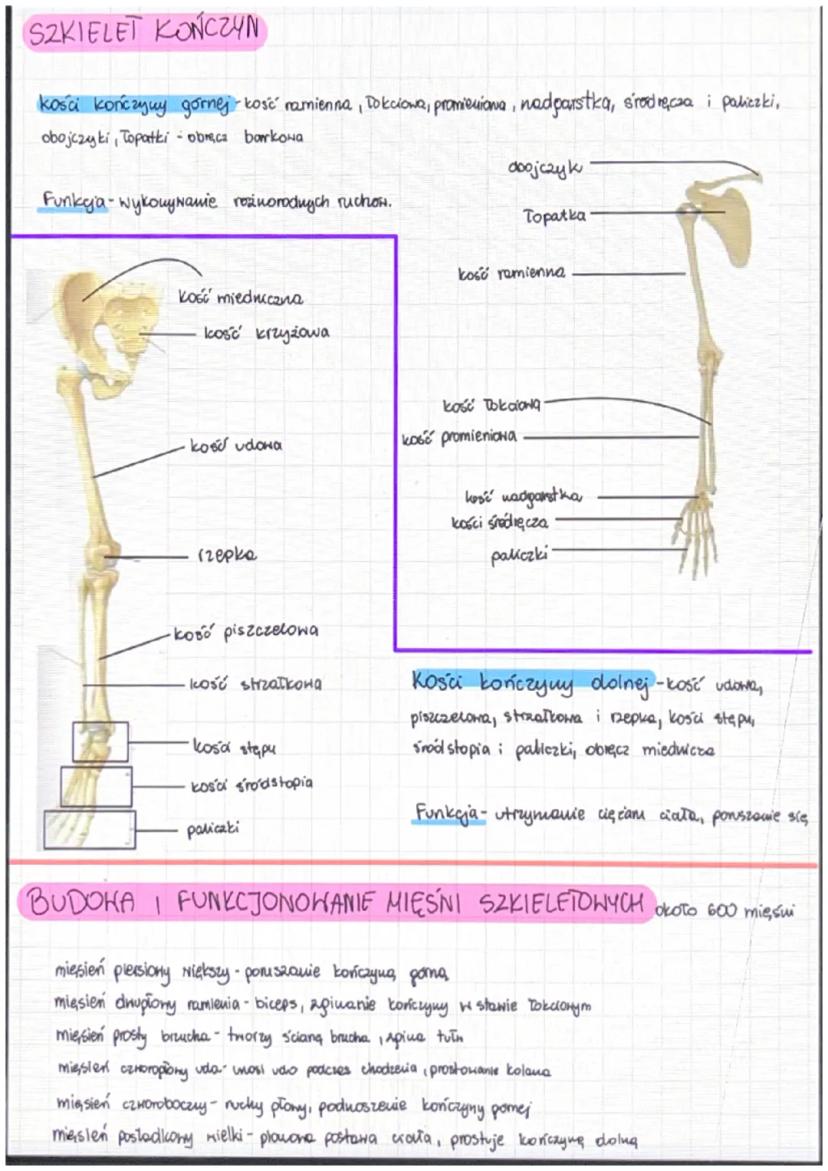 SZKIELET KOŃCZYN
kości kończyny górnej - kość ramienna, łokciowa, promieniowa, nadgarstka, śródręcza i paliczki,
obojczyki, łopatki - obręcz barkowa
Funkcja - wykonywanie różnorodnych ruchów.
obojczyk
łopatka
kość ramienna
kość łokciowa
kość promieniowa
kość nadgarstka
kości śródręcza
paliczki
kość miedniczna
kość krzyżowa
kość udowa
rzepka
kość piszczelowa
kość strzałkowa
kości stępu
kości śródstopia
paliczki
Kości kończyny dolnej - kość udowa,
piszczelowa, strzałkowa i rzepka, kości stępu,
śródstopia i paliczki, obręcz miednicza
Funkcja - utrzymanie ciężaru ciała, poruszanie się
BUDOWA I FUNKCJONOWANIE MIĘŚNI SZKIELETOWYCH około 600 mięśni
mięsień piersiowy większy - poruszanie kończyną górną
mięsień dwugłowy ramienia - biceps, zginanie kończyny w stawie łokciowym
mięsień prosty brzucha - tworzy ścianę brzucha, zgina tułw
mięsień czworogłowy uda - unosi udo podczas chodzenia, prostowanie kolana
mięsień czworoboczny - ruchy głowy, podnoszenie kończyny górnej
mięsień pośladkowy wielki - pionowa postawa ciała, prostuje kończynę dolną